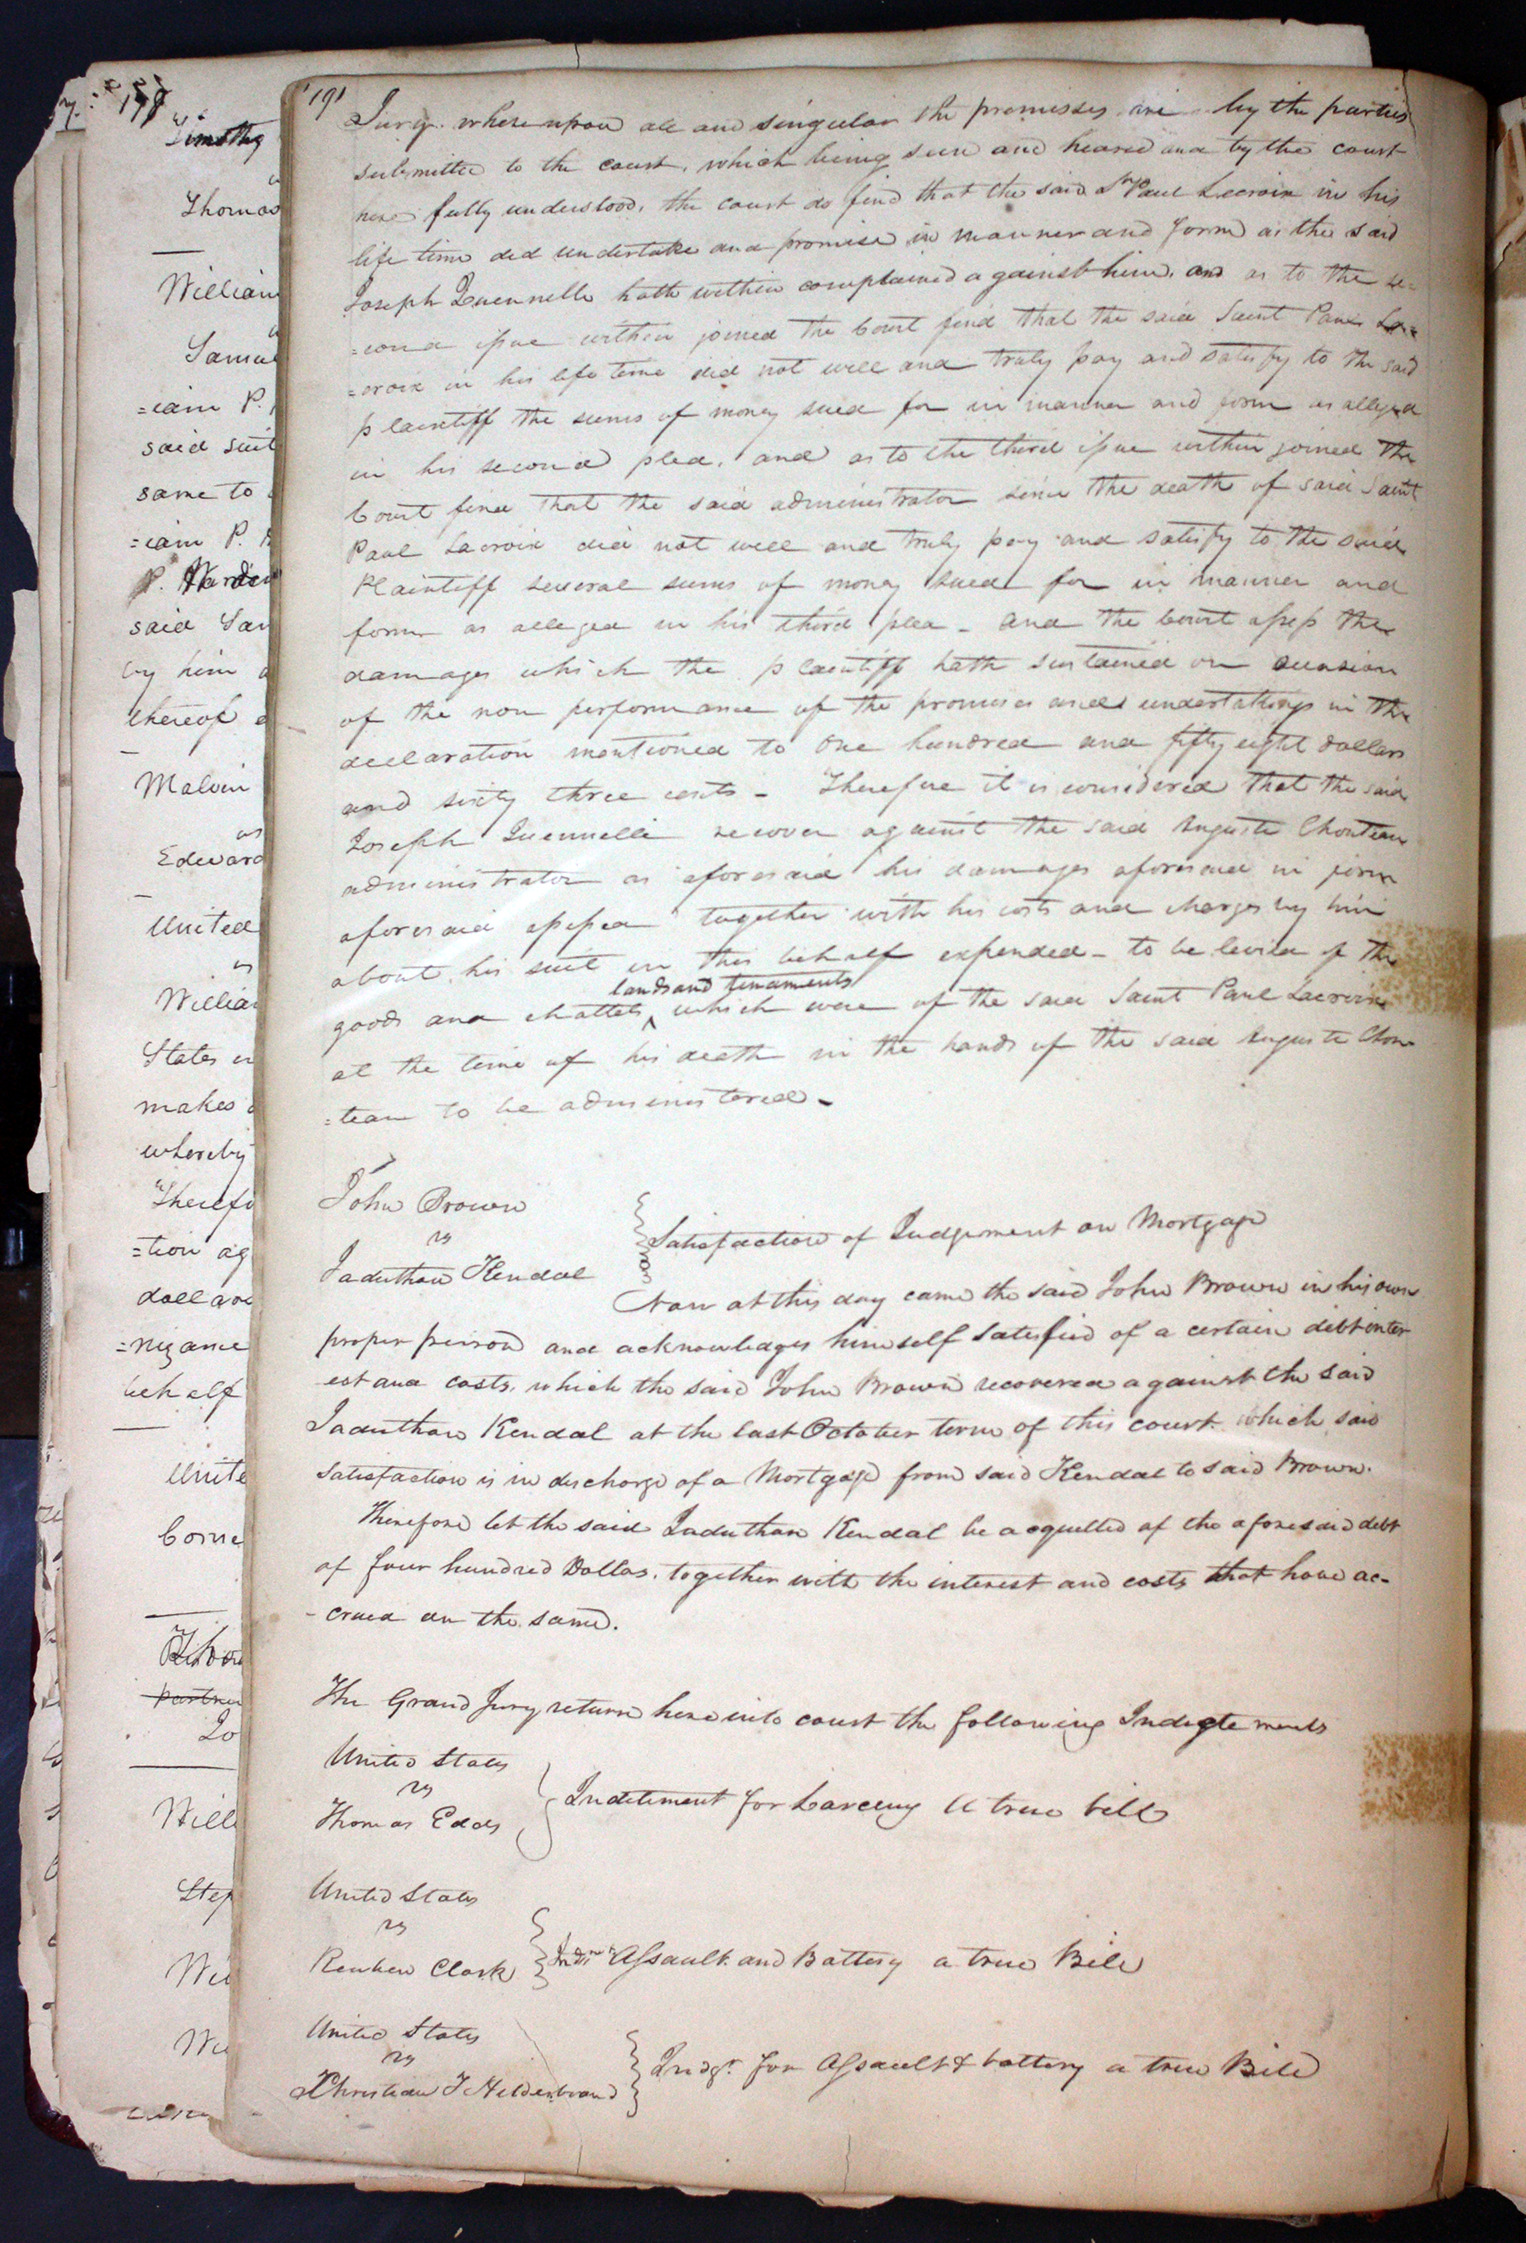 191
Jury. whereupon all and singular the premisses are by the parties
submitted to the court, which being seen and heared and by the court
here fully understood, the court do find that the said St Paul Lacroix in his
life time did undertake and promise in manner and form as the said
Joseph Quennelle hath within complained against him, and as to the se=
=cond issue within joined the Court find that the said Saint Paul La=
=croix in his life time did not well and truly pay and satisfy to the said
plaintiff the sums of money sued for in manner and form as alleged
in his second plea, and as to the third issue within joined the
Court find that the said administrator since the death of said Saint
Paul Lacroix did not well and truly pay and satisfy to the said
Plaintiff several sums of money sued for in manner and
form as alleged in his third plea - and the Court assess the
damages which the plaintiff hath sustained on occasion
of the non performance of the promises and undertakings in the
declaration mentioned to One hundred and fifty eight dollars
and sixty three cents - Therefore it is considered that the said
Joseph Quennelle recover against the said Auguste Chouteau
administrator as aforesaid his damages aforesaid in form
aforesaid assessed together with his costs and charges by him
about his suit in this behalf expended - to be levied of the
lands and tenaments
goods and chattels ^ which were of the said Saint Paul Lacroix
at the time of his death in the hands of the said Auguste Chou=
=teau to be administered -
John Brown
vs
Jaduthan Kendal
Satisfaction of Judgement on Mortgage
Now at this day came the said John Brown in his own
proper person and acknowledges himself satisfied of a certain debt inter
est and costs, which the said John Brown recovered against the said
Jaduthan Kendal at the last October term of this court which said
satisfaction is in discharge of a Mortgage from said Kendal to said Brown.
Therefore let the said Jaduthan Kendal be acquitted of the aforesaid debt
of four hundred Dollas, together with the interest and costs that have ac-
-crued on the same.
The Grand Jury return here into court the following Indictements
United States
vs
Thomas Eads
Inditement for Larceny A true bill
United States
vs
Reuben Clark
Indmt Assault and Battery a true Bill
United States
vs
Christian T Hildenbrand
Indgt. for Assault & battery a true Bill
Timothy
Thomas
William
=iam P.
said suit
same to
=iam P.
said
by him
thereof
Malvin
vs
Edward
United
vs
States
makes
whereby
=tion ag
behalf